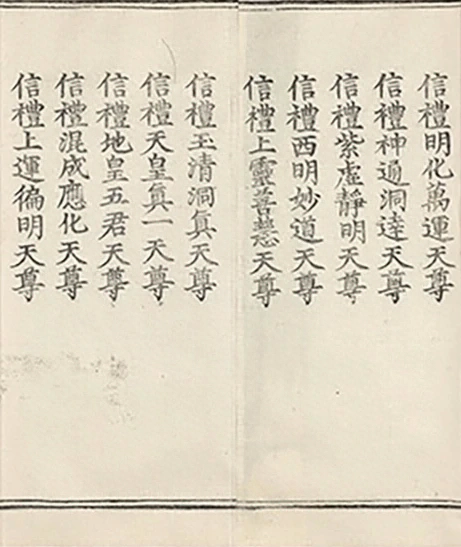 信禮明化萬運天尊
信禮神通洞達天尊
信禮紫虛靜明天尊
信禮西明妙道天尊
信禮上靈善慈天尊
信禮玉清洞真天尊
信禮天皇真一天尊
信禮地皇五君天尊
信禮混成應化天尊
信禮上運徧明天尊